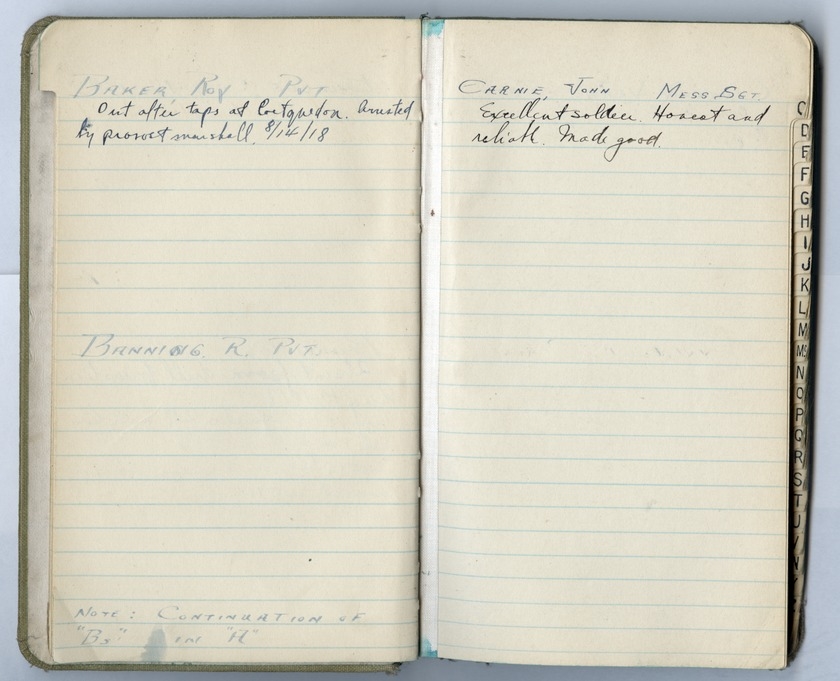 BAKER ROY PVT
Out after taps at Coetquidon. Arrested
by provost marshall. 8/14/18
BANNING. R. PVT.
NOTE: CONTINUATION OF
"Bs" IN "H"
CARNIE, JOHN MESS SGT.
Excellent soldier. Honest and
reliabl. Made good.
C
D
E
F
G
H
I
J
K
L
M
Mc
N
O
P
Q
R
S
T
U
V
W